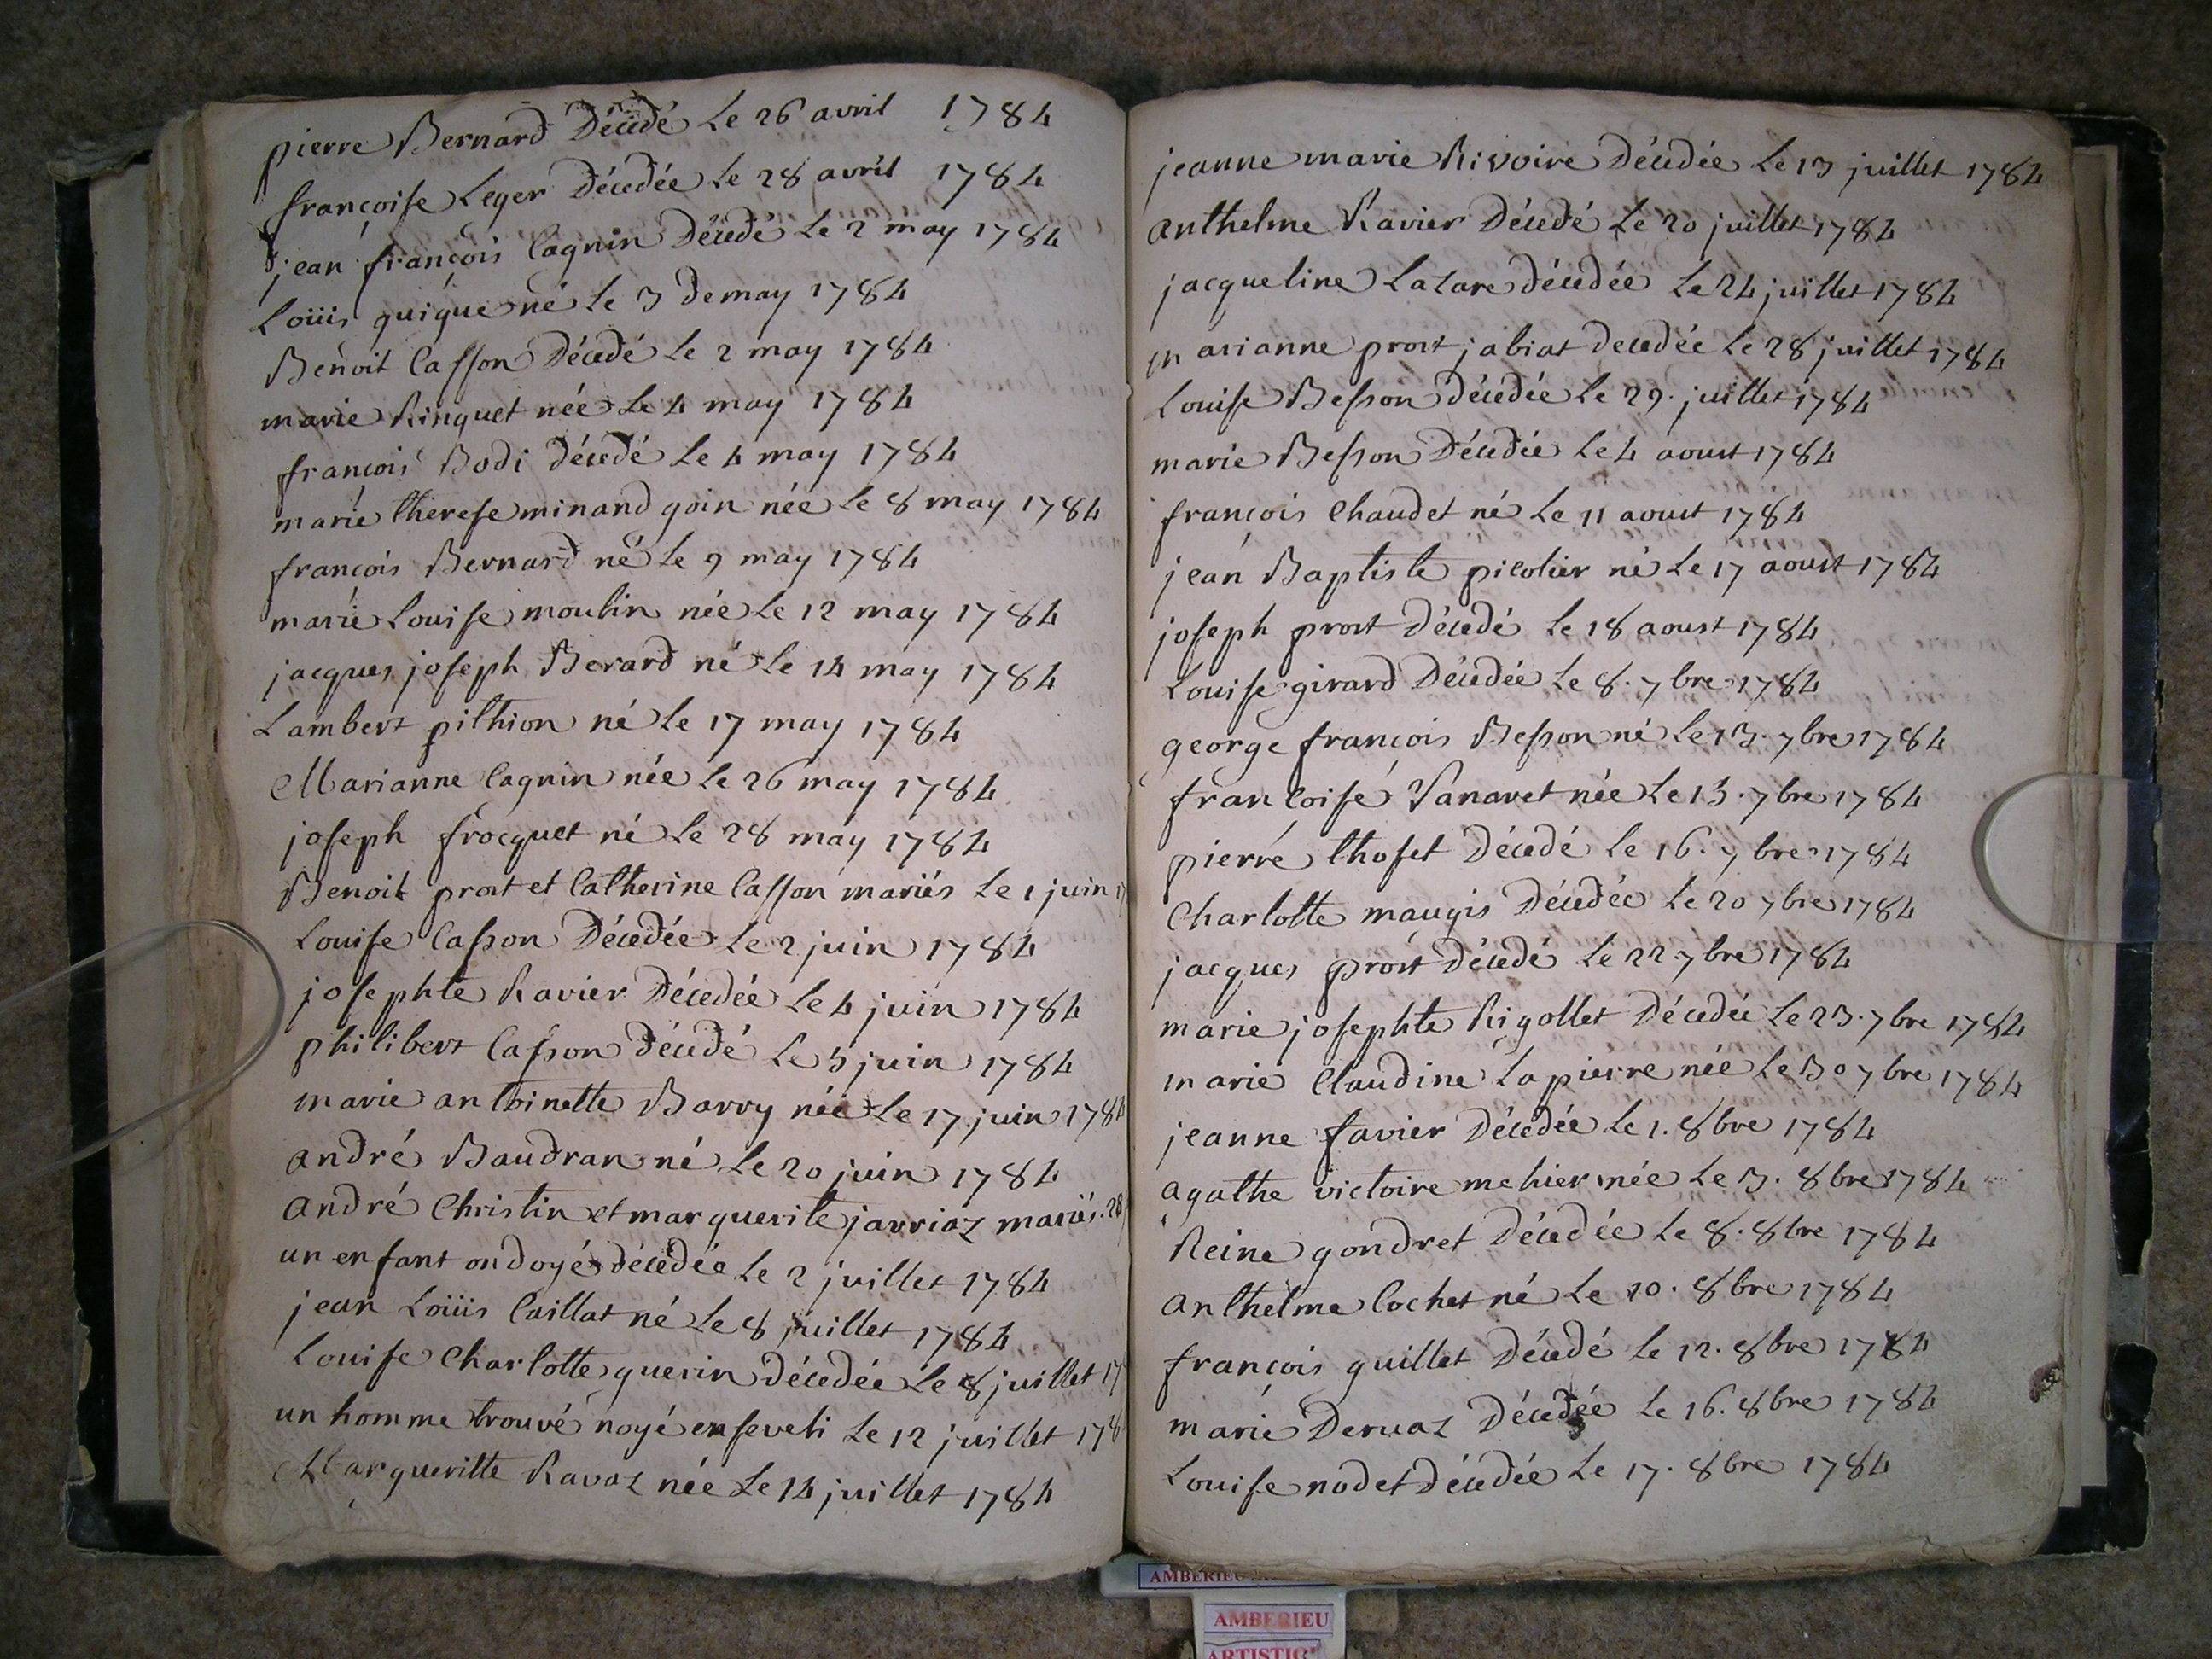 pierre Bernard Décédé Le 26 avril 1784
françoise Leger décedée Le 28 avril 1784
jean françois Cagnin Décédé Le 2 may 1784
Loüis guigue né Le 3 de may 1784
Benoit Casson Décedé Le 2 may 1784
marie Ringuet née Le 4 may 1784
françois Bodi décedé Le 4 may 1784
marie therese minand goin née Le 8 may 1784
françois Bernard né Le 9 may 1784
marie Louise moulin née Le 12 may 1784
jacques joseph Berard né Le 14 may 1784
Lambert pithion né Le 17 may 1784
Marianne Cagnin née Le 26 may 1784
joseph frocquet né Le 28 may 1784
Benoit prost et Catherine Casson mariés Le 1 juin
Louise Casson Décedée Le 2 juin 1784
josephte Ravier Décedée Le 4 juin 1784
philibert Casson décedé Le 5 juin 1784
marie antoinette Barry née Le 17 juin 1784
andré Baudran né Le 20 juin 1784
andré Christin et marguerite jarriaz mariés. 28
un enfant ondoyé décédée Le 2 juillet 1784
jean Loüis Caillat né Le 8 juillet 1784
Louise Charlotte guerin décedée Le 8 juillet 17
un homme trouvé noyé enseveli Le 12 juillet 178
Margueritte Ravaz née Le 14 juillet 1784
jeanne marie Rivoire Décedée Le 13 juillet 1784
anthelme Ravier Décedé Le 20 juillet 1784
jacqueline Lazare décedée Le 24 juillet 1784
marianne prost jabiat decedée Le 28 juillet 1784
Louise Besson Décedée Le 29. juillet 1784
marie Besson Décedée Le 4 aoust 1784
françois Chaudet né Le 11 aoust 1784
jean Baptiste picolier né Le 17 aoust 1784
joseph prost Décedé Le 18 aoust 1784
Louise girard Décedée Le 8. 7bre 1784
george françois Besson né Le 13. 7bre 1784
francoise Vanavet née Le 13. 7bre 1784
pierre thoset Décedé Le 16. 7bre 1784
Charlotte maugis Décedée Le 20 7bre 1784
jacques prost Décedé Le 22. 7bre 1784
marie josephte Rigollet Décedée Le 23. 7bre 1784
marie Claudine Lapierre née Le 30 7bre 1784
jeanne favier Décedée Le 1. 8bre 1784
agathe victoire mehier née Le 3. 8bre 1784
Reine gondret Décedée Le 8. 8bre 1784
anthelme Cochet né Le 10. 8bre 1784
françois guillet Décedé Le 12. 8bre 1784
marie Deruaz Décedée Le 16. 8bre 1784
Louise nodet Décedée Le 17. 8bre 1784
AMBERIEU
AMBERIEU